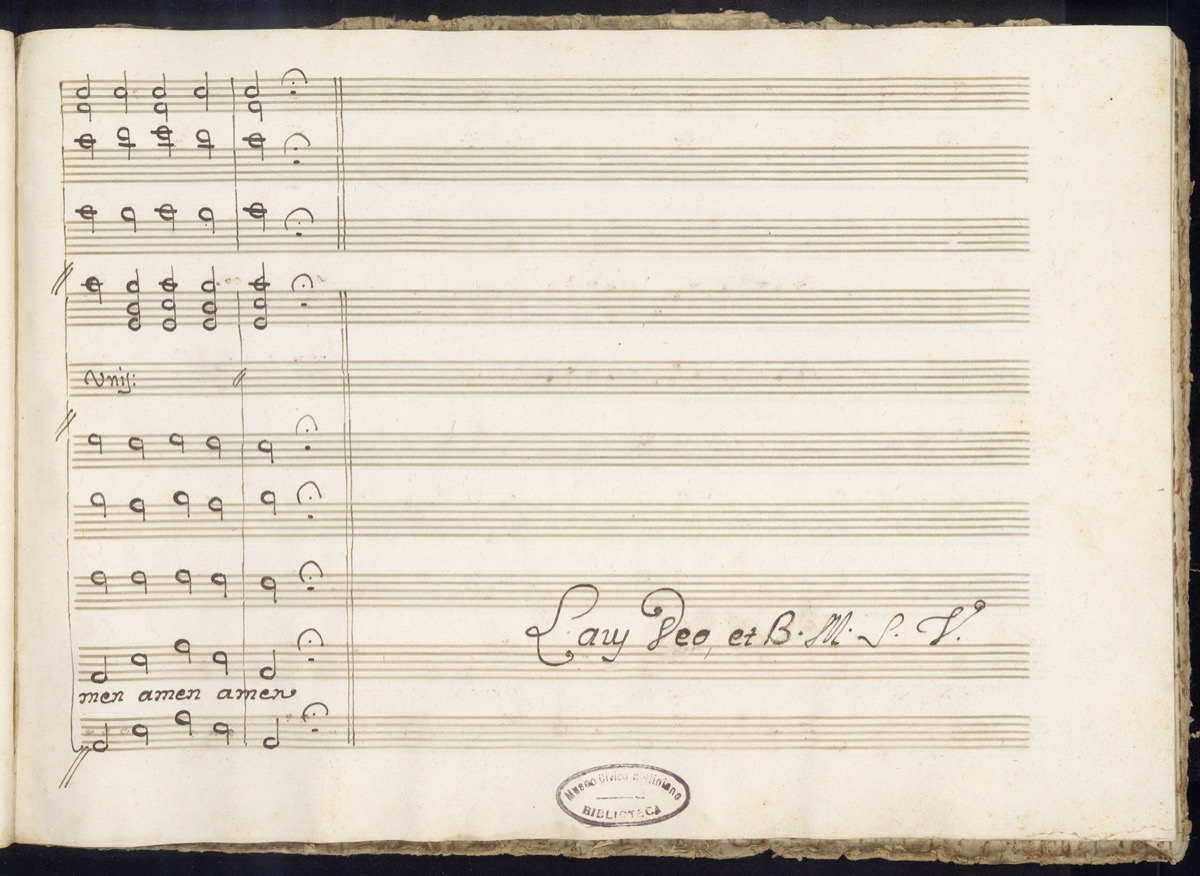 Unis:
Laus Deo, et B. M. S. V.
men amen amen
Museo Civico Belliniano
BIBLIOTECA